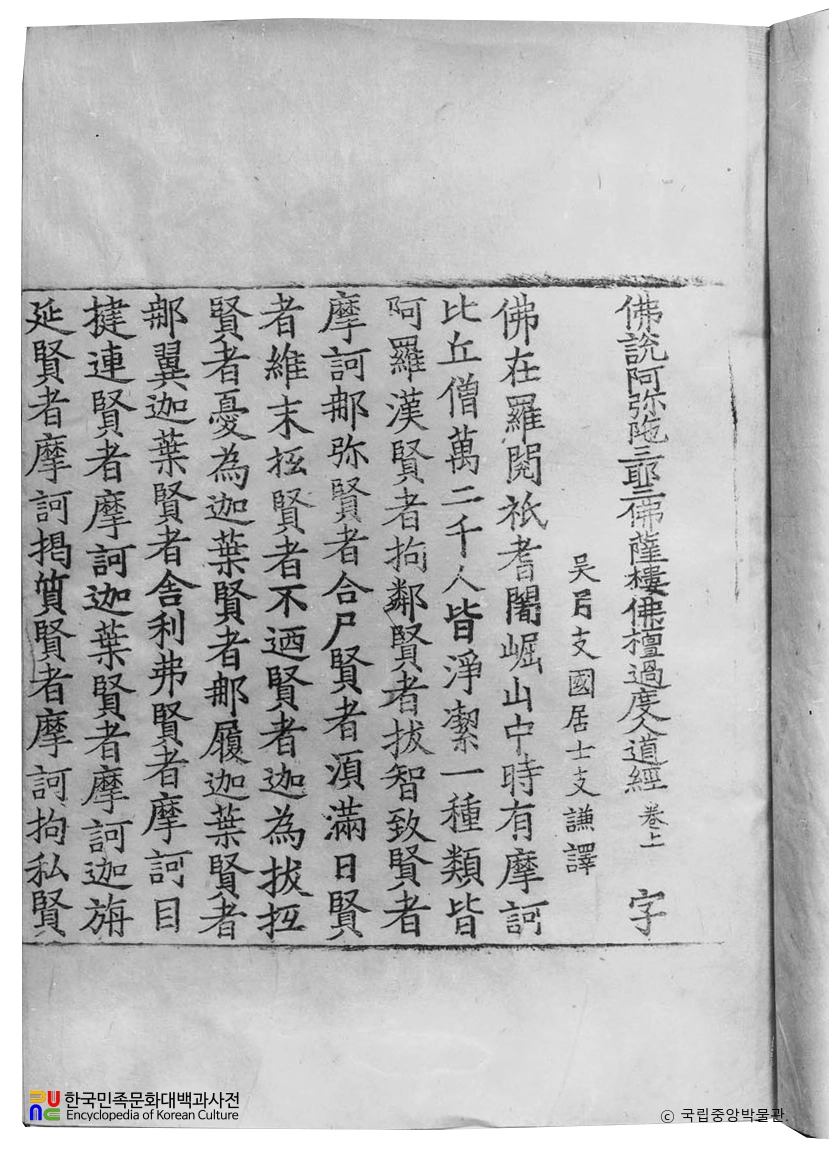 佛說阿弥陁三耶三佛薩樓佛檀過度人道經卷上 字
吳月支國居士支謙譯
佛在羅閱祇耆闍崛山中時有摩訶
比丘僧萬二千人皆淨潔一種類皆
阿羅漢賢者拘鄰賢者拔智致賢者
摩訶那弥賢者合尸賢者湏滿日賢
者維末坻賢者不迺賢者迦為拔坻
賢者憂為迦葉賢者那履迦葉賢者
那翼迦葉賢者舍利弗賢者摩訶目
揵連賢者摩訶迦葉賢者摩訶迦旃
延賢者摩訶揭質賢者摩訶拘私賢
한국민족문화대백과사전
Encyclopedia of Korean Culture
ⓒ 국립중앙박물관.